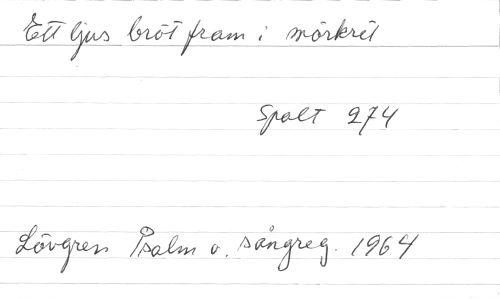 Ett ljus bröt fram i mörkret
Spalt 274
Lövgren Psalm o. sångreg. 1964